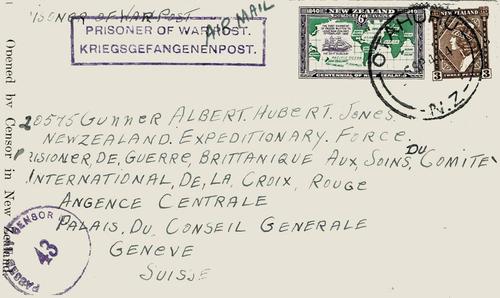 PRISONER OF WAR POST
AIR MAIL
PRISONER OF WAR POST.
KRIEGSGEFANGENENPOST.
1840 NEW ZEALAND 1940
CENTENNIAL OF
NEW ZEALAND
3 3
OTAHUHU
N.Z.
Opened by Censor in New Zealand.
20575 GUNNER ALBERT. HUBERT. JONES.
NEWZEALAND. EXPEDITIONARY. FORCE.
PRISIONER, DE, GUERRE, BRITTANIQUE AUX, SOINS, DU COMITE
INTERNATIONAL, DE, LA. CROIX, ROUGE
ANGENCE CENTRALE
PALAIS. DU. CONSEIL GENERALE
GENEVE
SUISSE
PASSED CENSOR
43